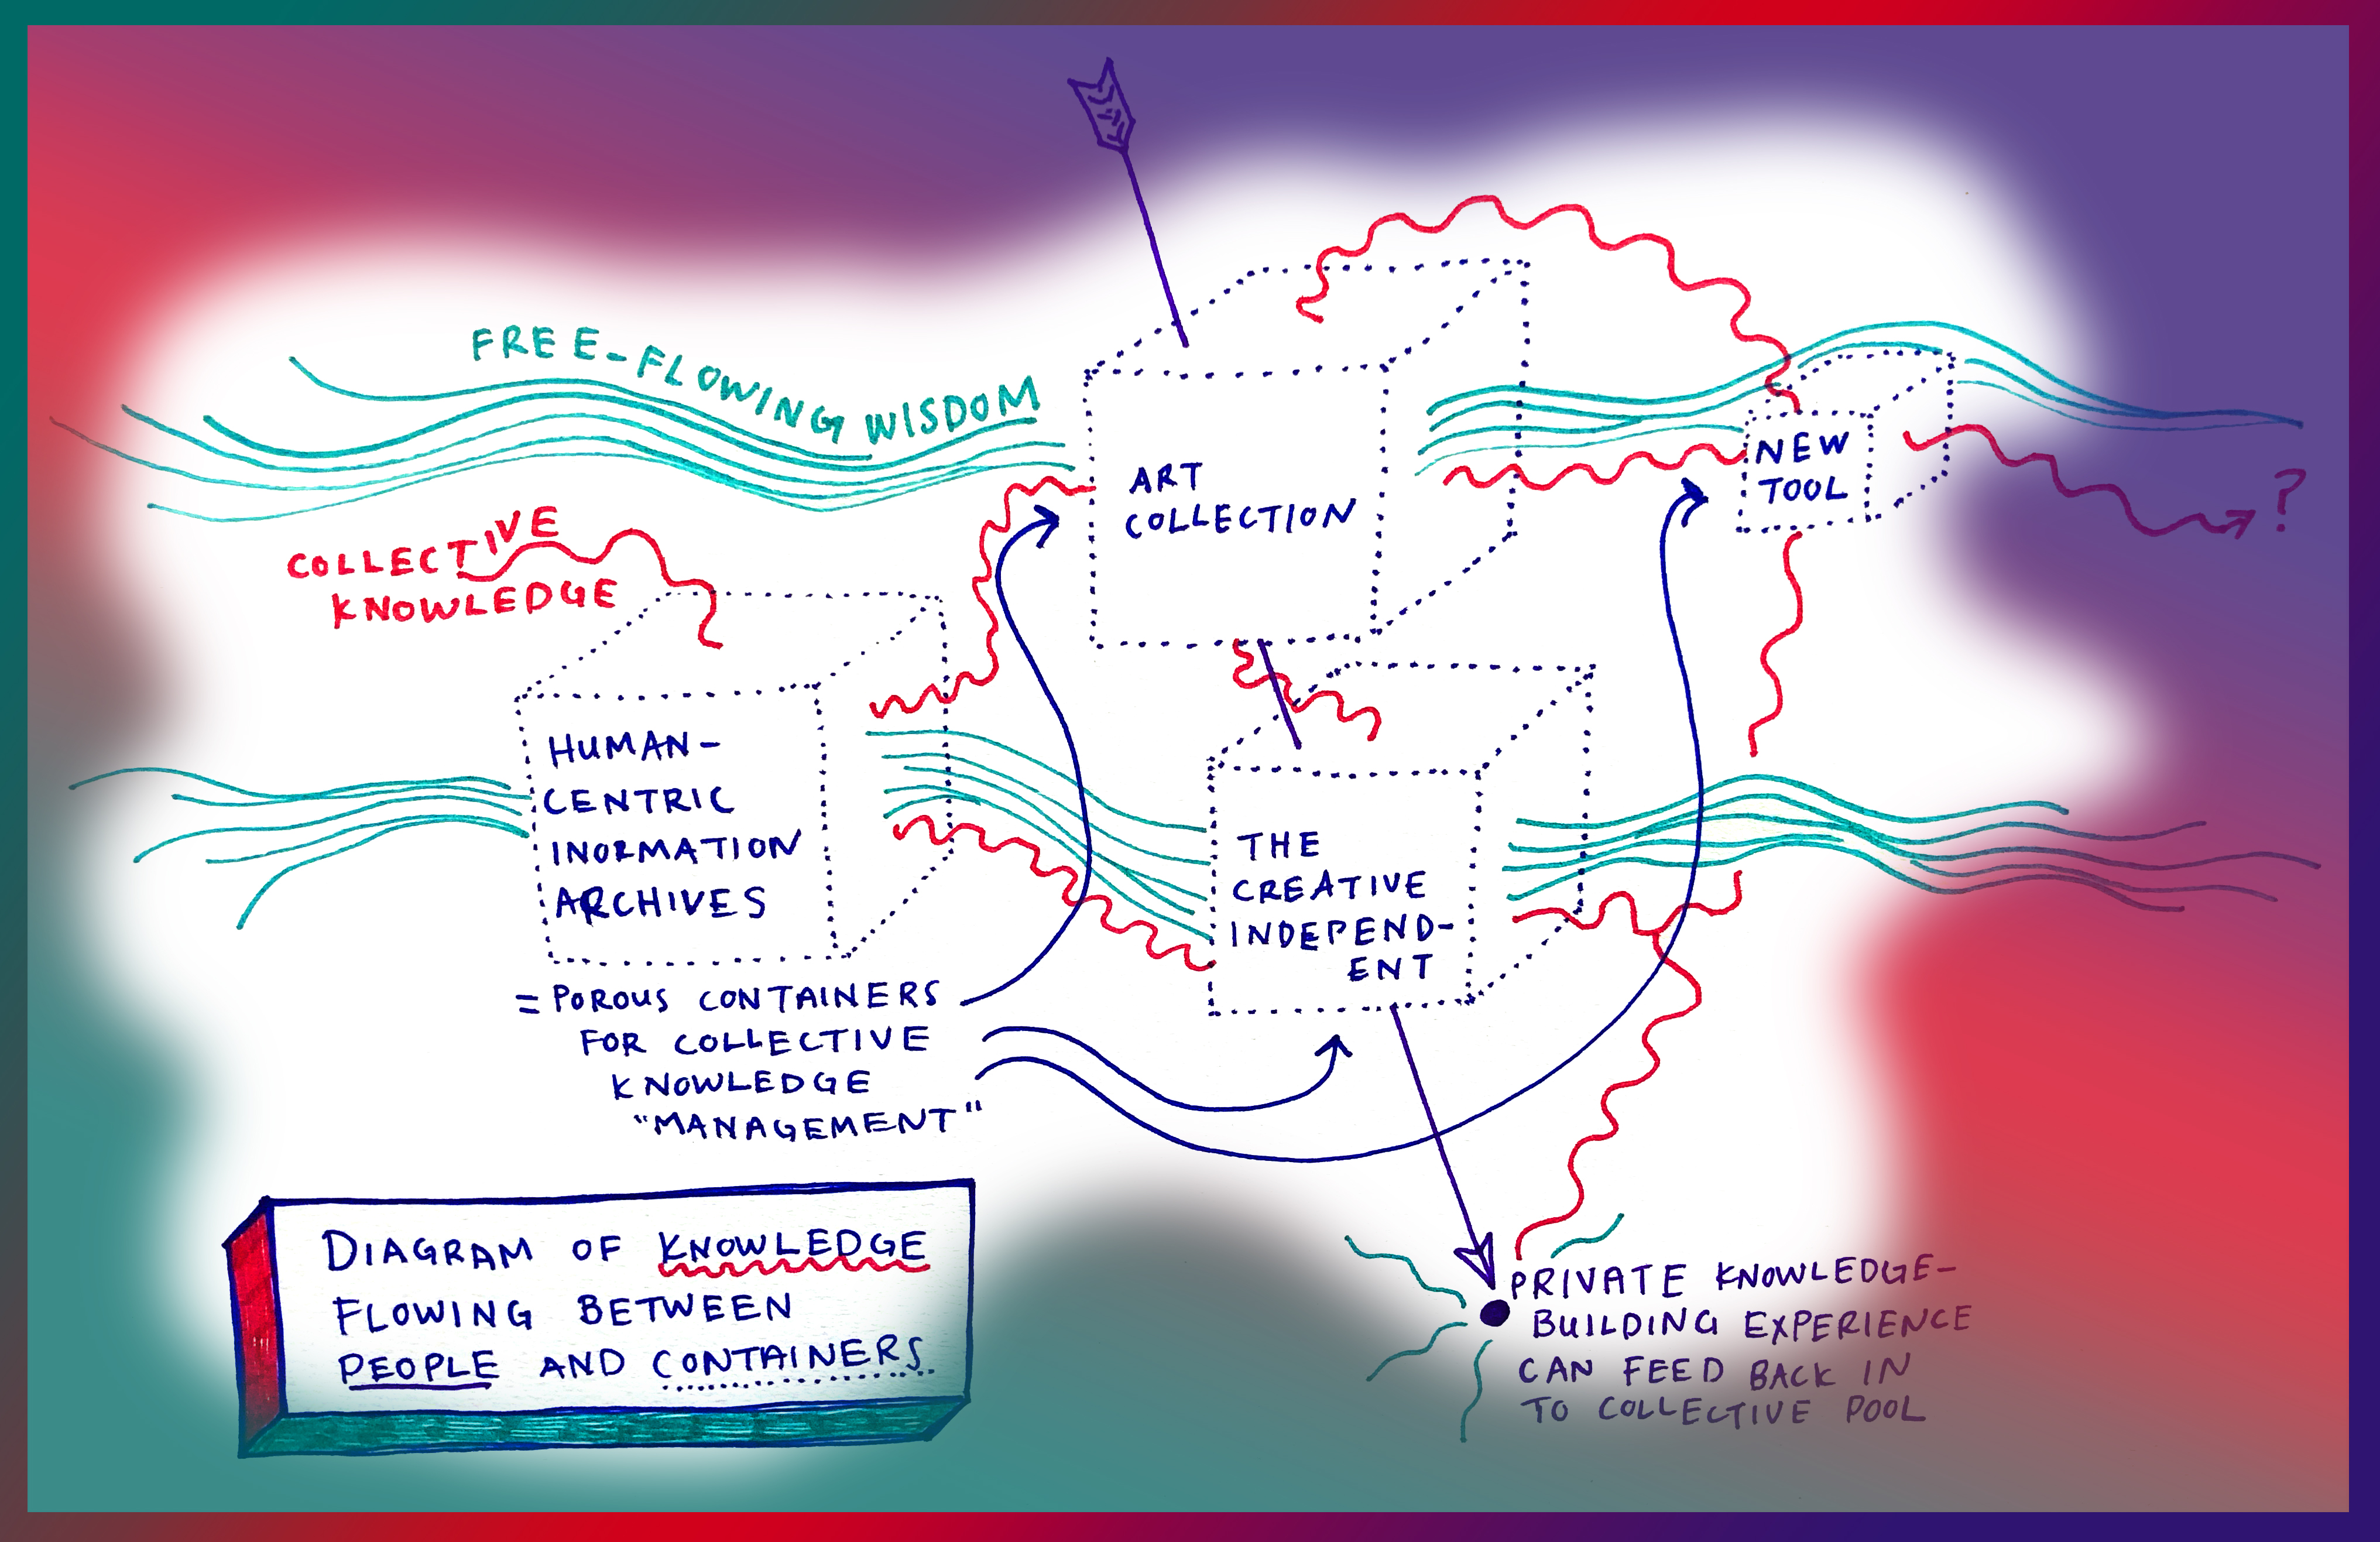 FREE-FLOWING WISDOM
COLLECTIVE
KNOWLEDGE
ART
COLLECTION
NEW
TOOL
?
HUMAN-
CENTRIC
INORMATION
ARCHIVES
= POROUS CONTAINERS
FOR COLLECTIVE
KNOWLEDGE
"MANAGEMENT"
THE
CREATIVE
INDEPEND-
ENT
DIAGRAM OF KNOWLEDGE
FLOWING BETWEEN
PEOPLE AND CONTAINERS.
PRIVATE KNOWLEDGE-
BUILDING EXPERIENCE
CAN FEED BACK IN
TO COLLECTIVE POOL